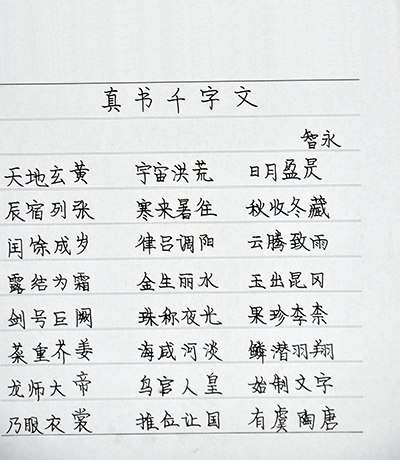 真书千字文
智永
天地玄黄 宇宙洪荒 日月盈昃
辰宿列张 寒来暑往 秋收冬藏
闰馀成岁 律吕调阳 云腾致雨
露结为霜 金生丽水 玉出昆冈
剑号巨阙 珠称夜光 果珍李柰
菜重芥姜 海咸河淡 鳞潜羽翔
龙师火帝 鸟官人皇 始制文字
乃服衣裳 推位让国 有虞陶唐